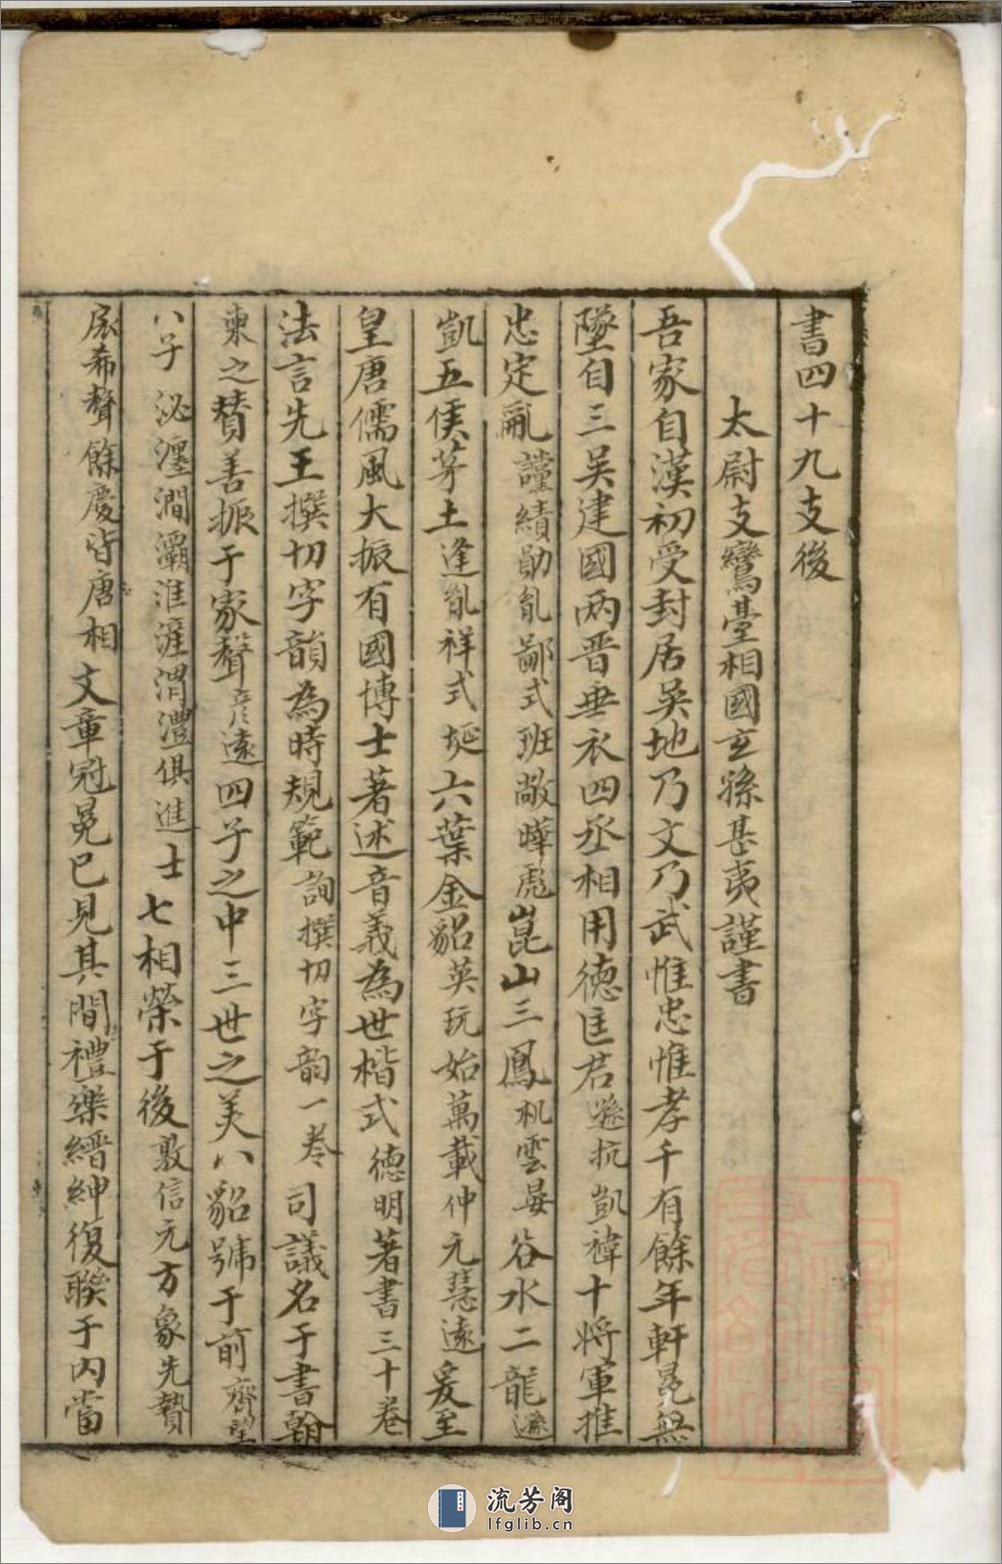 書四十九支後
太尉支鸞臺相國玄孫甚夷謹書
吾家自漢初受封居吳地乃文乃武惟忠惟孝千有餘年軒冕無
墜自三吳建國兩晉垂衣四丞相用德匡君遜抗凱禕十將軍推
忠定亂謹績勛胤鄙式班敞曄彪崑山三鳳机雲晏谷水二龍遜
凱五侯茅土逢胤祥式埏六葉金貂英玩始萬載仲元慧遠爰至
皇唐儒風大振有國博士著述音義為世楷式德明著書三十卷
法言先王撰切字韻為時規範詢撰切字韵一卷司議名于書翰
柬之贊善振于家聲彦遠四子之中三世之美八貂號于前齊望
八子泌瀍澗灞淮漄渭澧俱進士七相榮于後敦信元方象先贄
扆希聲餘慶皆唐相文章冠冕已見其間禮樂縉紳復聯于內當
流芳阁
lfglib.cn